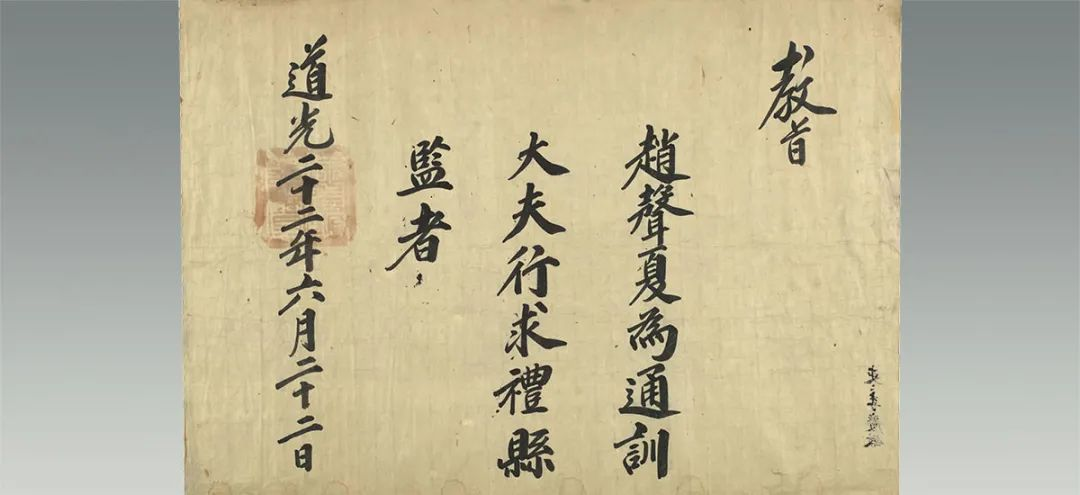 教旨
趙聲夏為通訓
大夫行求禮縣
監者
道光二十二年六月二十二日